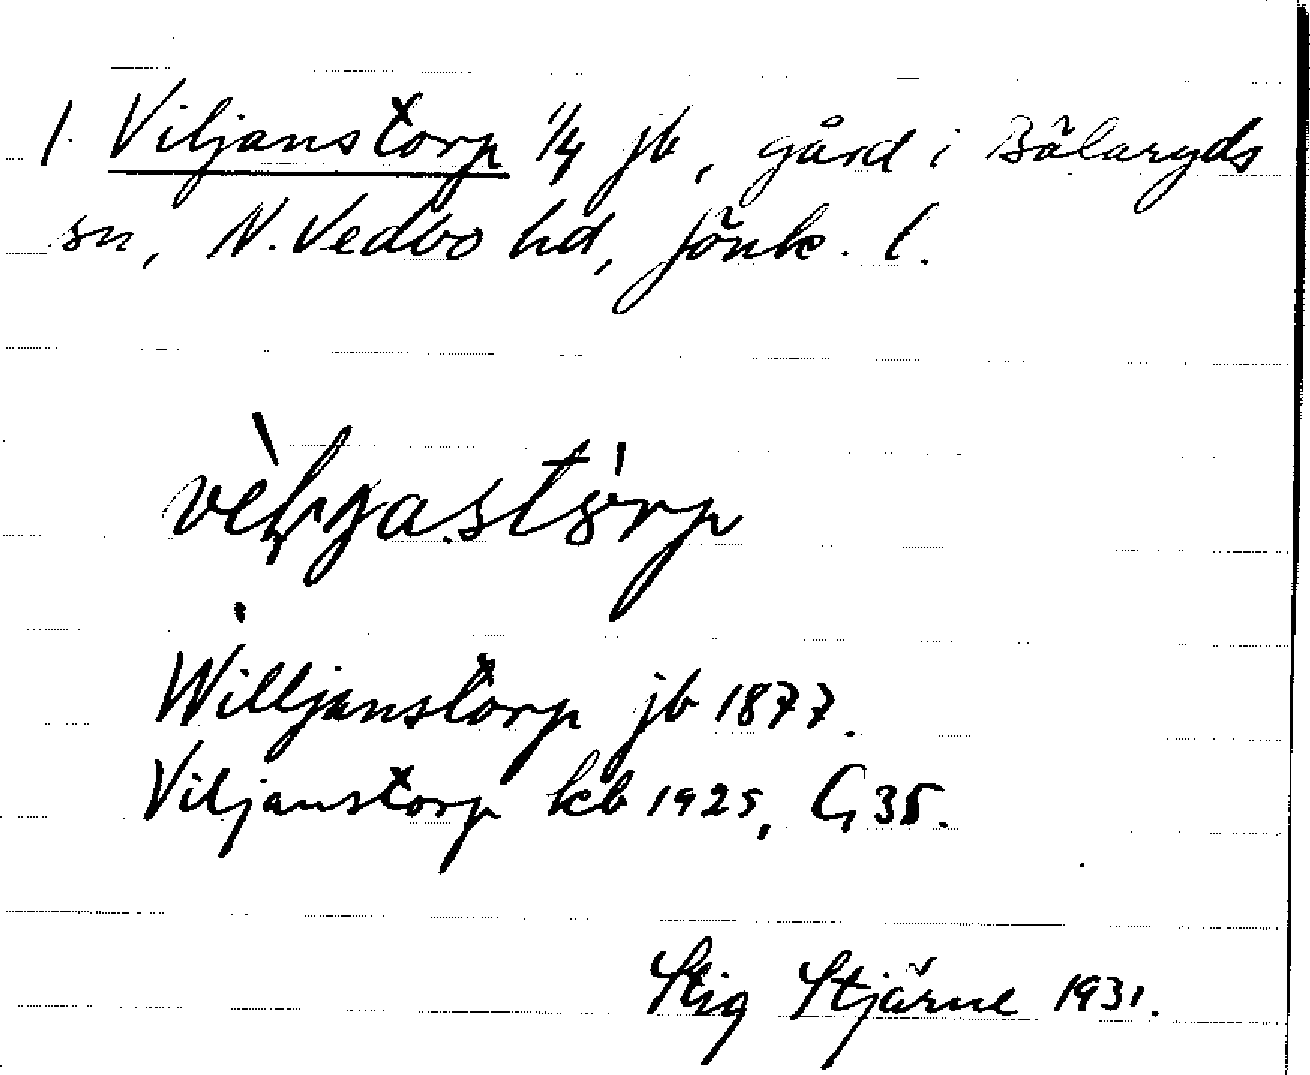 1. Viljanstorp 1/4 jb, gård i Bälaryds
sn, N. Vedbo hd, Jönk. l.
Willjanstorp jb 1877.
Viljanstorp kb 1925, G 35.
Stig Stjärne 1931.